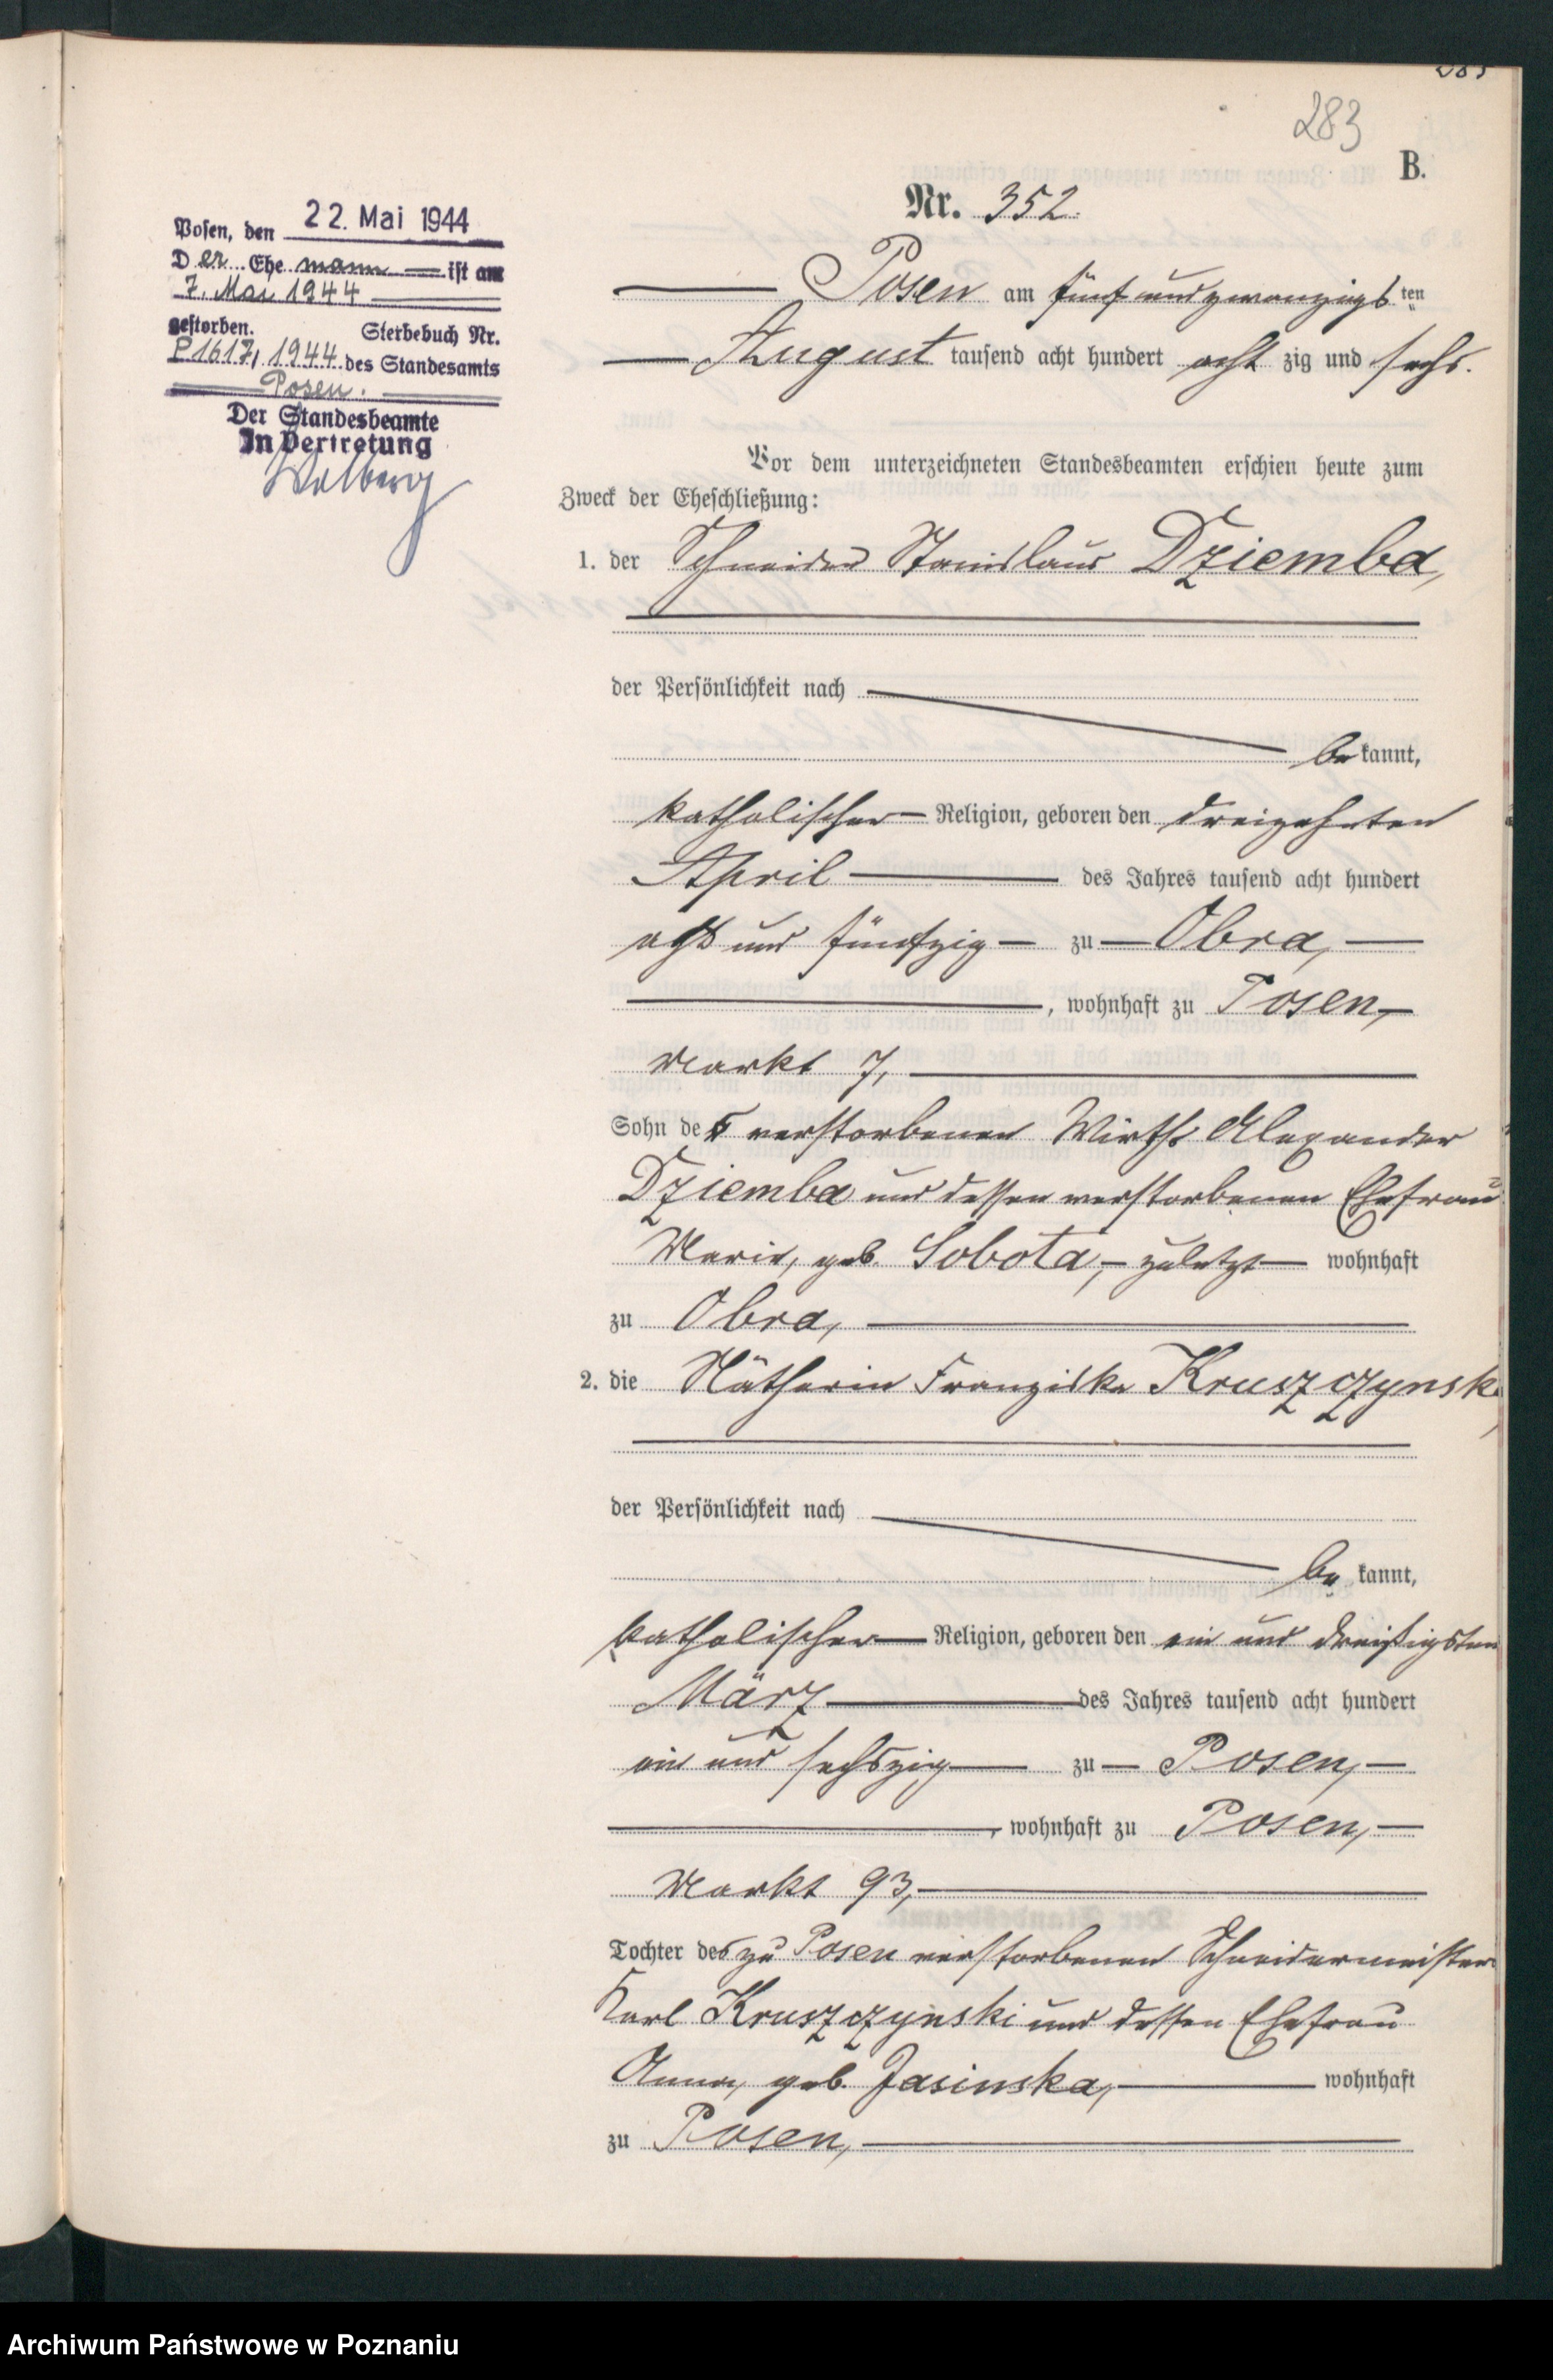 283
B.
Nr. 352.
Posen, den 22. Mai 1944
Der Ehemann ist am
7. Mai 1944
gestorben. Sterbebuch Nr.
P1617/1944 des Standesamts
Posen.
Der Standesbeamte
In Vertretung
Posen am fünf und zwanzigsten
August tausend acht hundert acht zig und sechs.
Vor dem unterzeichneten Standesbeamten erschien heute zum
Zweck der Eheschließung:
1. der Schneider Stanislaus Dziemba,
der Persönlichkeit nach
bekannt,
katholischer Religion, geboren den dreizehnten
April des Jahres tausend acht hundert
acht und fünfzig zu Obra,
, wohnhaft zu Posen,
Markt 7,
Sohn des verstorbenen Wirths Alexander
Dziemba und dessen verstorbenen Ehefrau
Marie, geb. Sobota, zuletzt wohnhaft
zu Obra,
2. die Nätherin Franziska Kruszczynsk
der Persönlichkeit nach
bekannt,
katholischer Religion, geboren den ein und dreißigsten
März des Jahres tausend acht hundert
ein und sechszig zu Posen,
, wohnhaft zu Posen,
Markt 93,
Tochter des zu Posen verstorbenen Schneidermeister
Karl Kruszczynski und dessen Ehefrau
Anna, geb. Jasinska, wohnhaft
zu Posen,
Archiwum Państwowe w Poznaniu